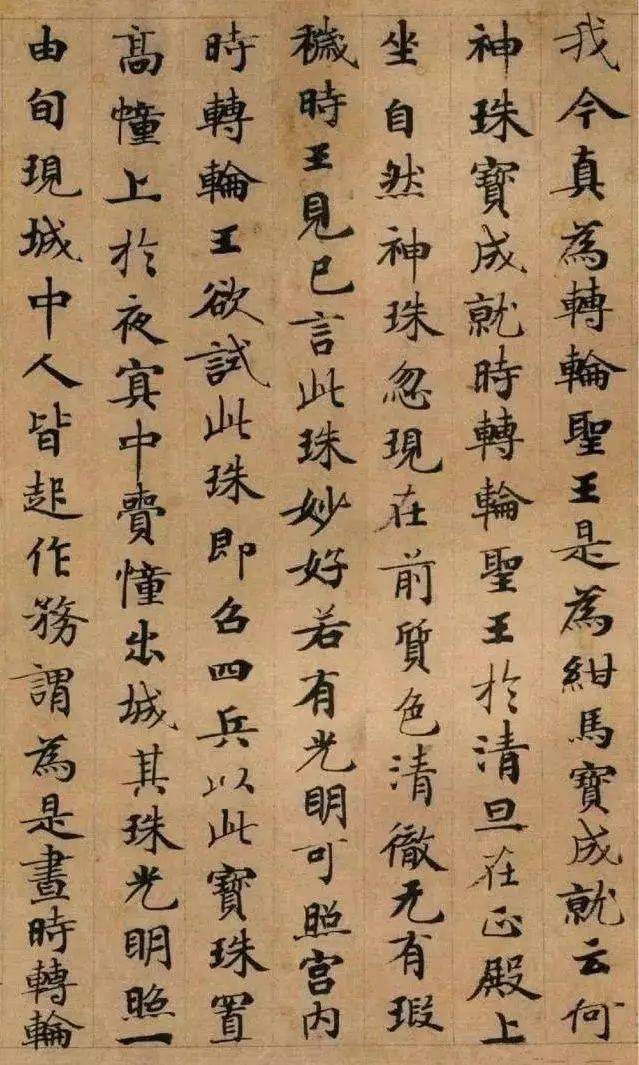 我今真為轉輪聖王是為紺馬寶成就云何
神珠寶成就時轉輪聖王於清旦在正殿上
坐自然神珠忽現在前質色清徹无有瑕
穢時王見已言此珠妙好若有光明可照宮內
時轉輪王欲試此珠即召四兵以此寶珠置
高幢上於夜㝠中賷憧出城其珠光明照一
由旬現城中人皆起作務謂為是晝時轉輪